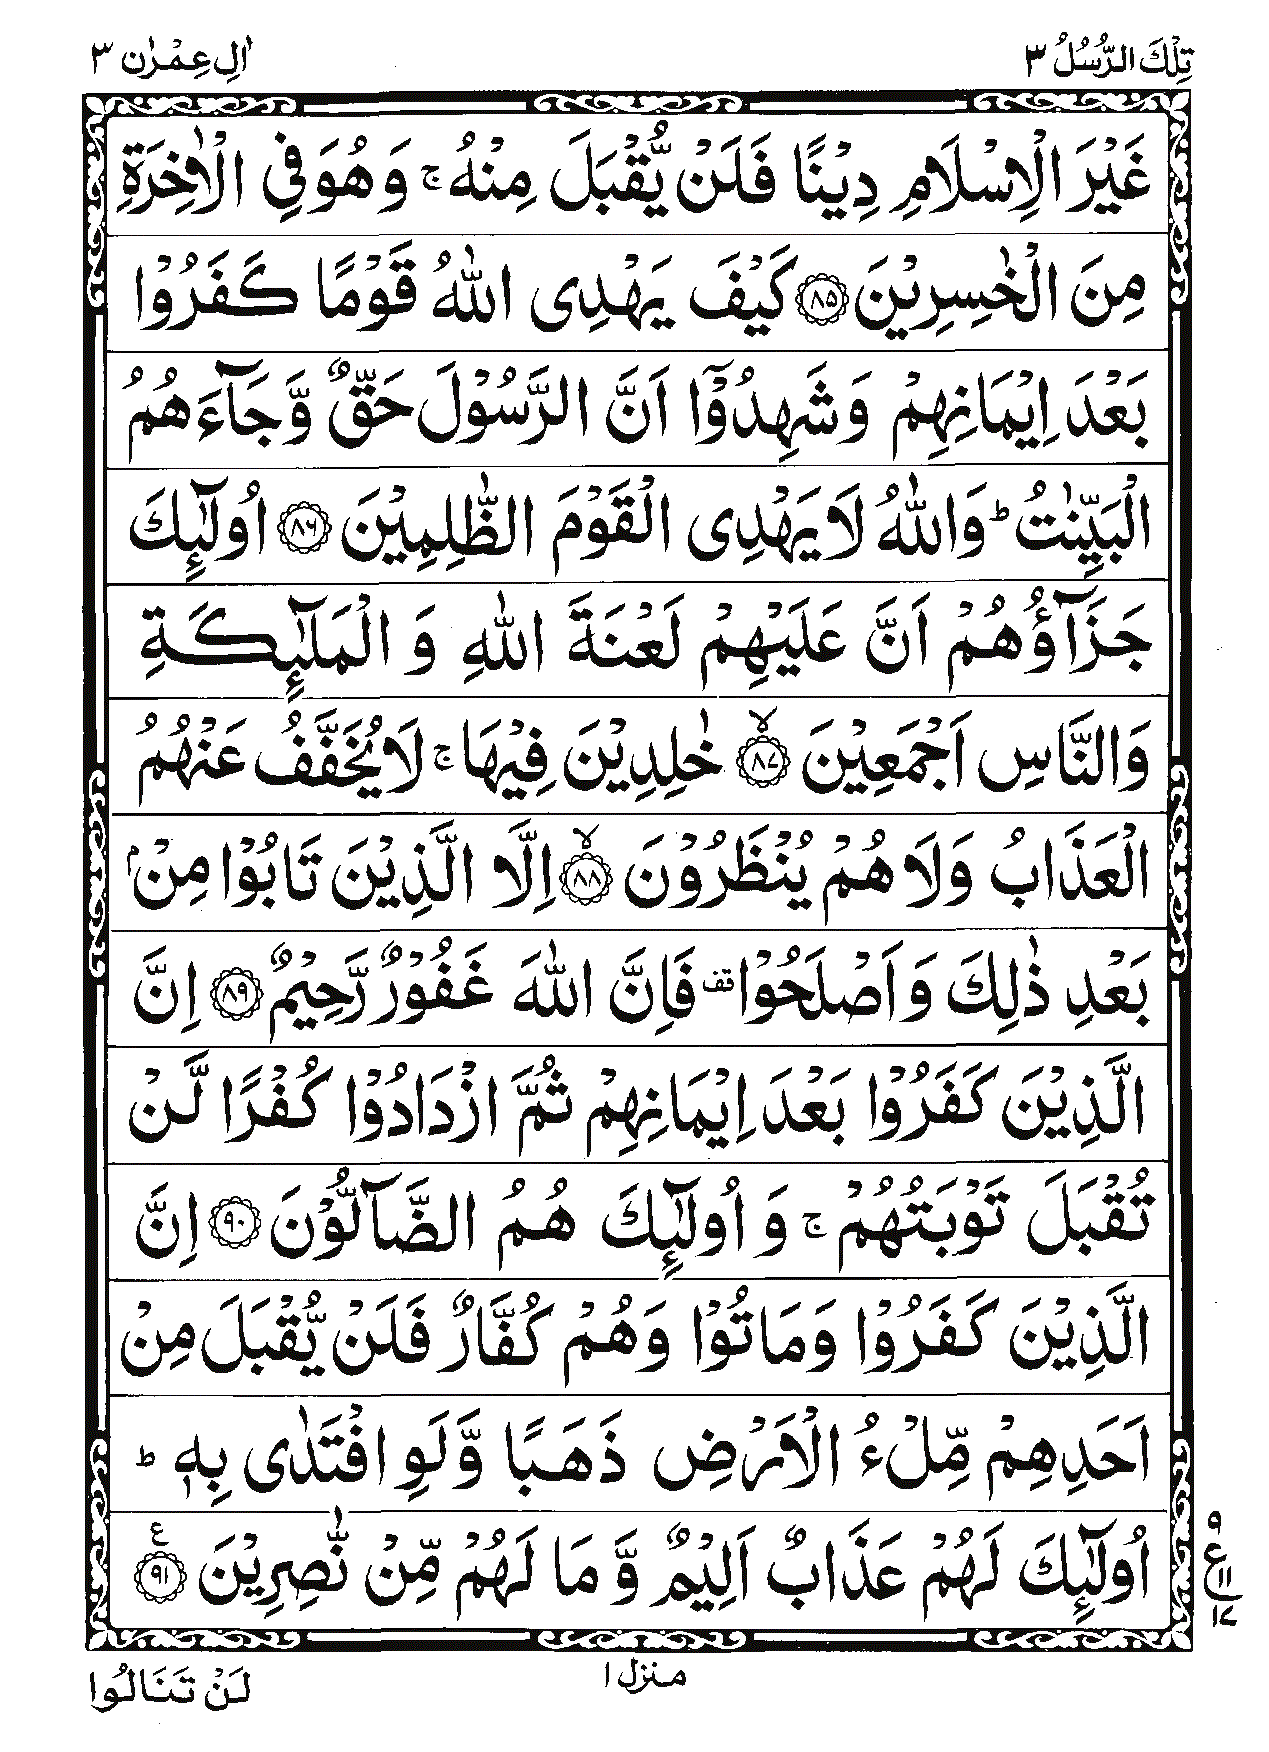 تِلْكَ الرُّسُلُ ٣
اٰلِ عِمْرٰن ٣
غَيْرَ الْاِسْلَامِ دِيْنًا فَلَنْ يُّقْبَلَ مِنْهُ ۚ وَهُوَ فِي الْاٰخِرَةِ
مِنَ الْخٰسِرِيْنَ ﴿٨٥﴾ كَيْفَ يَهْدِى اللّٰهُ قَوْمًا كَفَرُوْا
بَعْدَ اِيْمَانِهِمْ وَشَهِدُوْٓا اَنَّ الرَّسُوْلَ حَقٌّ وَّجَآءَهُمُ
الْبَيِّنٰتُ ؕ وَاللّٰهُ لَا يَهْدِى الْقَوْمَ الظّٰلِمِيْنَ ﴿٨٦﴾ اُولٰٓئِكَ
جَزَآؤُهُمْ اَنَّ عَلَيْهِمْ لَعْنَةَ اللّٰهِ وَ الْمَلٰٓئِكَةِ
وَالنَّاسِ اَجْمَعِيْنَ ۙ ﴿٨٧﴾ خٰلِدِيْنَ فِيْهَا ۚ لَا يُخَفَّفُ عَنْهُمُ
الْعَذَابُ وَلَا هُمْ يُنْظَرُوْنَ ۙ ﴿٨٨﴾ اِلَّا الَّذِيْنَ تَابُوْا مِنْۢ
بَعْدِ ذٰلِكَ وَ اَصْلَحُوْا قف فَاِنَّ اللّٰهَ غَفُوْرٌ رَّحِيْمٌ ﴿٨٩﴾ اِنَّ
الَّذِيْنَ كَفَرُوْا بَعْدَ اِيْمَانِهِمْ ثُمَّ ازْدَادُوْا كُفْرًا لَّنْ
تُقْبَلَ تَوْبَتُهُمْ ۚ وَ اُولٰٓئِكَ هُمُ الضَّآلُّوْنَ ﴿٩٠﴾ اِنَّ
الَّذِيْنَ كَفَرُوْا وَمَاتُوْا وَهُمْ كُفَّارٌ فَلَنْ يُّقْبَلَ مِنْ
اَحَدِهِمْ مِّلْءُ الْاَرْضِ ذَهَبًا وَّلَوِ افْتَدٰى بِهٖ ؕ
اُولٰٓئِكَ لَهُمْ عَذَابٌ اَلِيْمٌ وَّ مَا لَهُمْ مِّنْ نّٰصِرِيْنَ ﴿٩١﴾ ع
٩
ع ١١
١٧
منزل ١
لَنْ تَنَالُوا